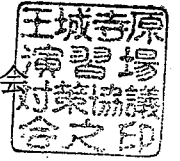 王城寺原
演習場
対策協議
会之印
会